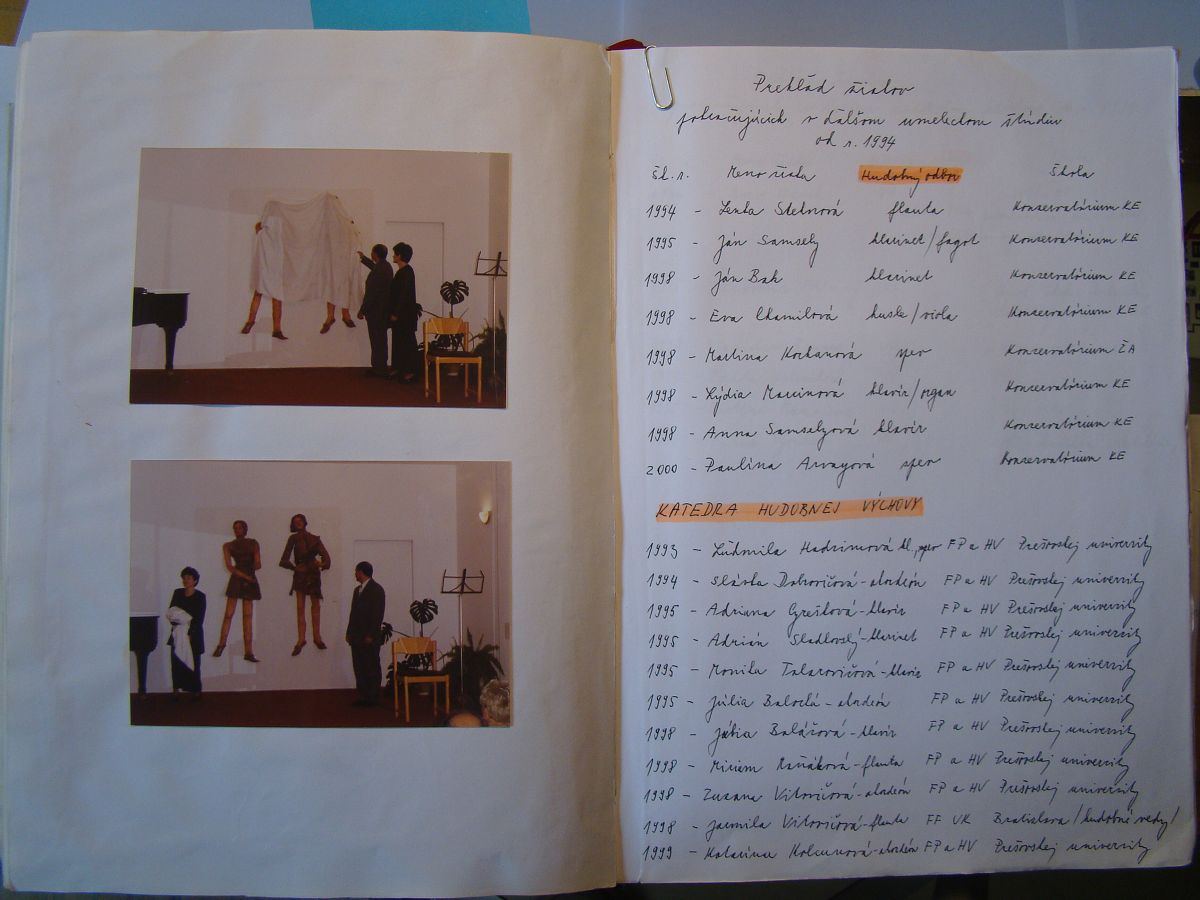 Prehľad žiakov
pokračujúcich v ďalšom umeleckom štúdiu
od r. 1994
šk. r. Meno žiaka Hudobný odbor Škola
1994 - Lenka flauta Konzervatórium KE
1995 - Ján Samsely klarinet/fagot Konzervatórium KE
1998 - Ján Bak klarinet Konzervatórium KE
1998 - Eva Chamilová husle/viola Konzervatórium KE
1998 - Martina spev Konzervatórium ŽA
1998 - Lýdia Marcinová klavír/organ Konzervatórium KE
1998 - Anna Samselyová klavír Konzervatórium KE
2000 - Paulína Arvayová spev Konzervatórium KE
KATEDRA HUDOBNEJ VÝCHOVY
1993 - Ľudmila kl., spev FP a HV Prešovskej university
1994 - Slávka akordeón FP a HV Prešovskej university
1995 - Adriana - klavír FP a HV Prešovskej university
1995 - Adrián Sladkovský - klarinet FP a HV Prešovskej university
1995 - Monika - klavír FP a HV Prešovskej university
1995 - Júlia - akordeón FP a HV Prešovskej university
1998 - Balážová - klavír FP a HV Prešovskej university
1998 - Miriam - flauta FP a HV Prešovskej university
1998 - Zuzana Vitovičová - akordeón FP a HV Prešovskej university
1998 - Jarmila Vitovičová - flauta FF UK Bratislava /hudobné vedy/
1999 - Katarína - akordeón FP a HV Prešovskej university